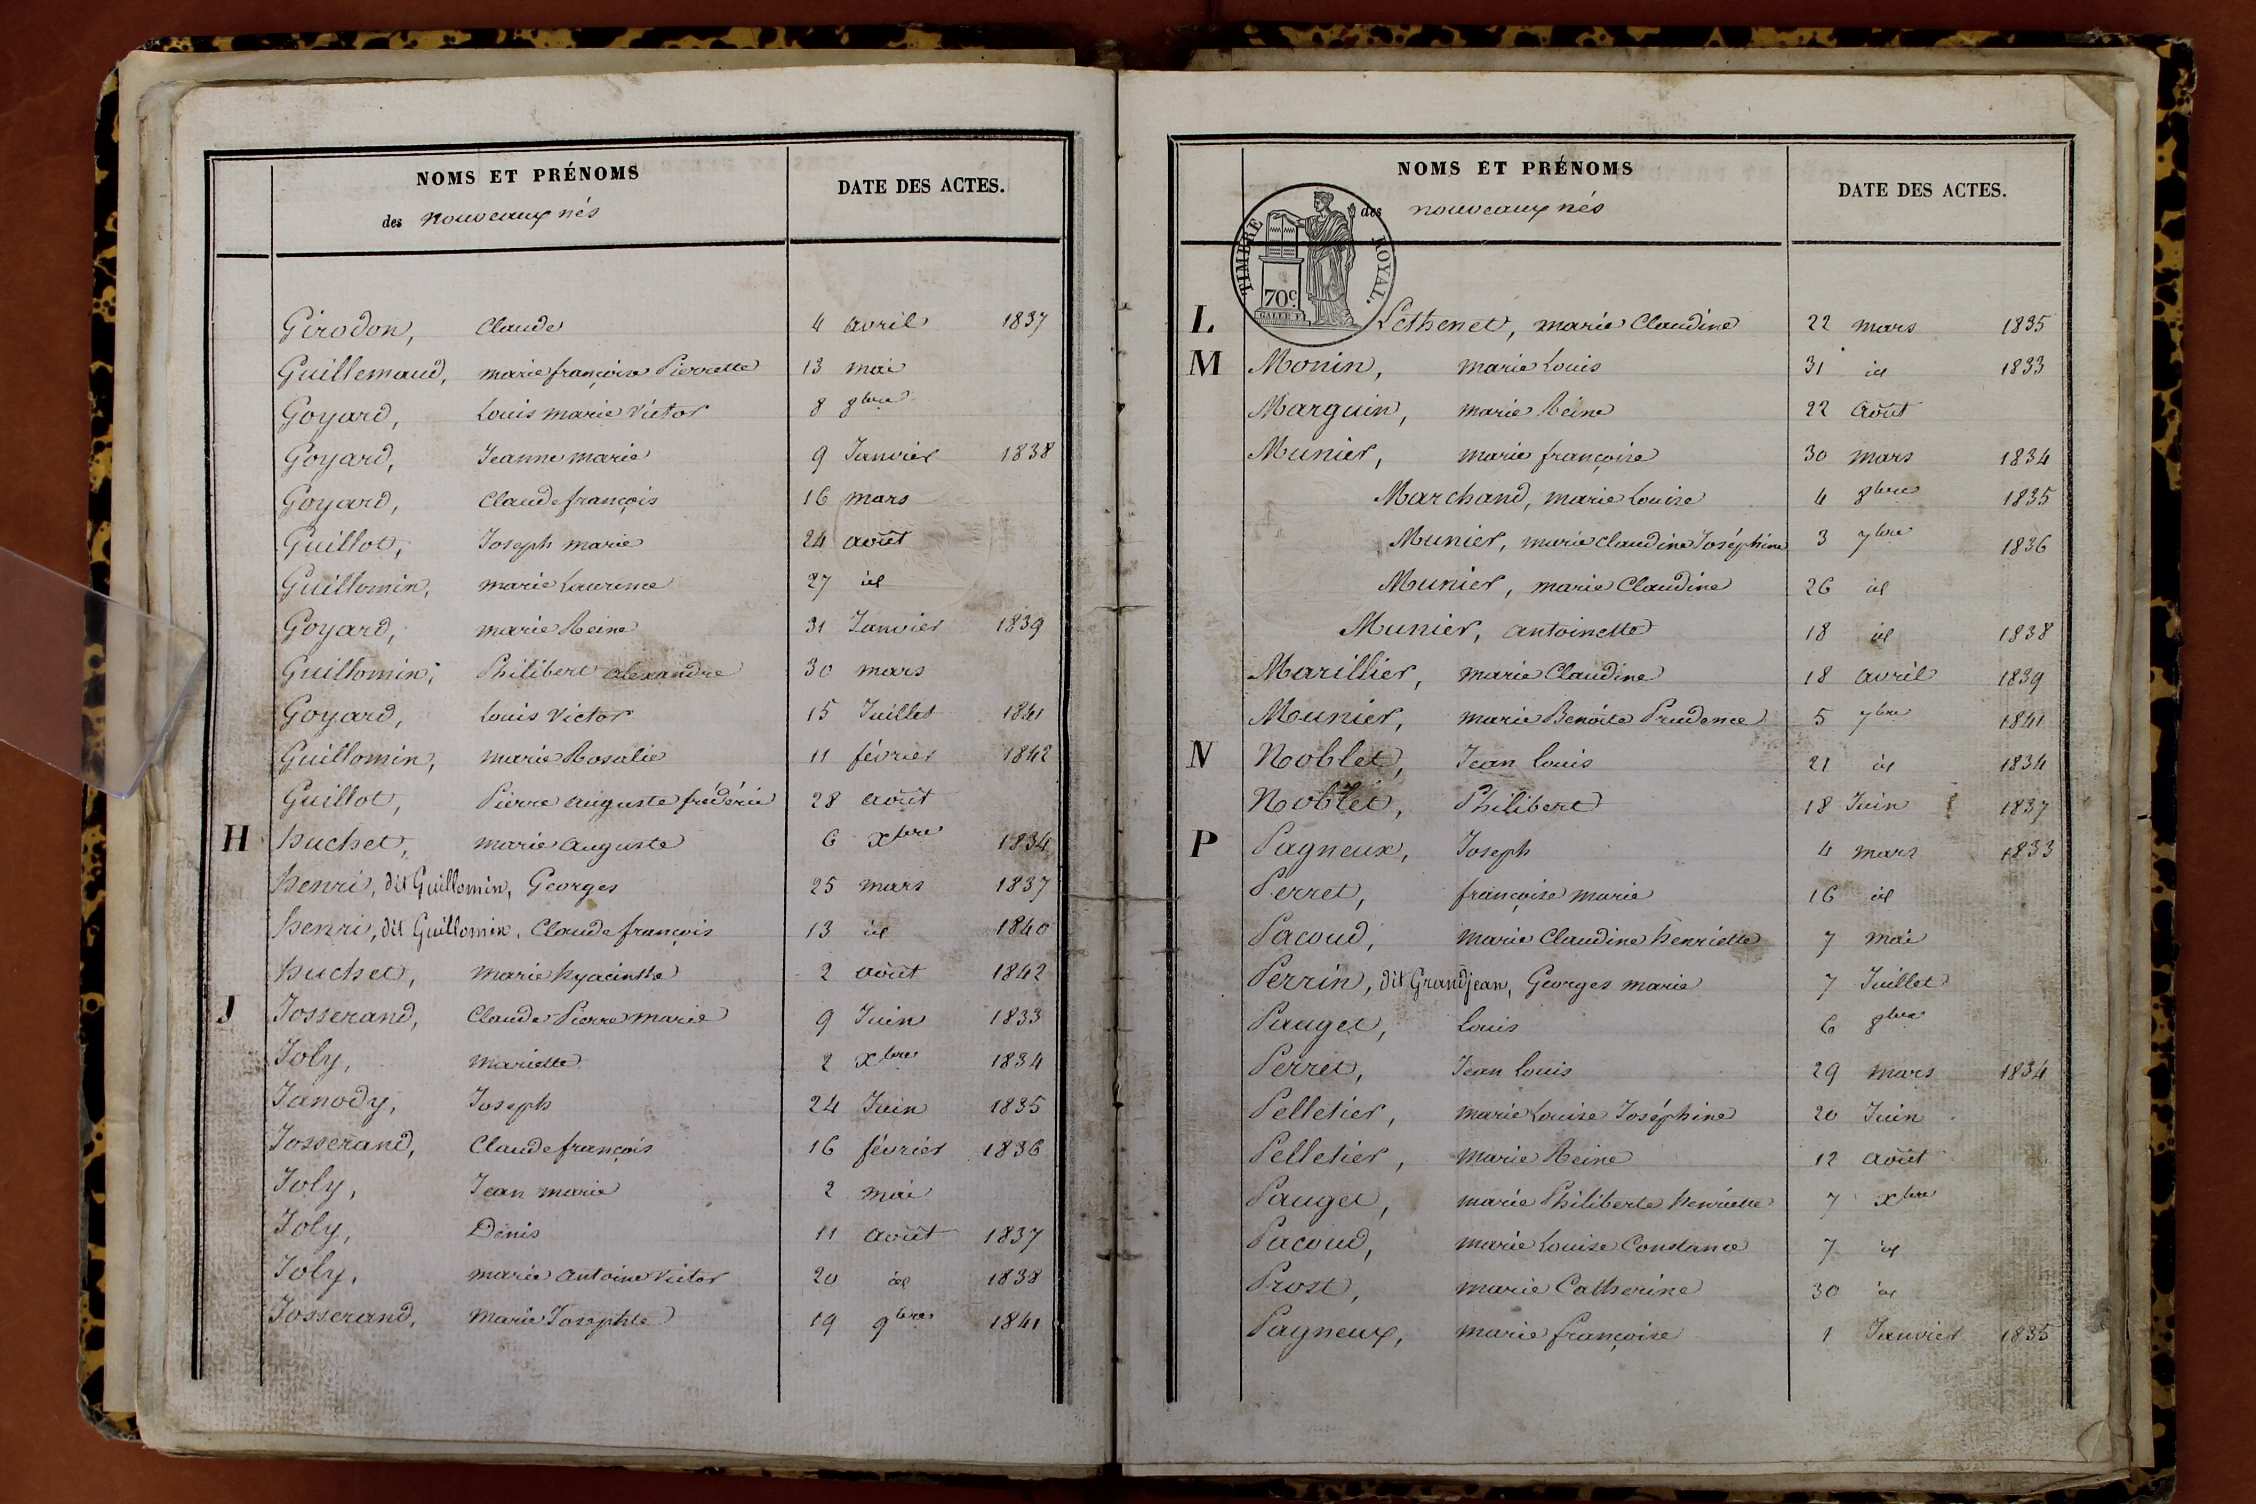 NOMS ET PRÉNOMS
DATE DES ACTES.
des nouveaux nés
Girodon, Claude 4 avril 1837
Guillemaud, marie françoise Pierrette 13 mai
Goyard, Louis marie Victor 8 8bre
Goyard, Jeanne marie 9 Janvier 1838
Goyard, Claude françois 16 mars
Guillot, Joseph marie 24 août
Guillomin, marie Laurence 27 id
Goyard, marie Reine 31 Janvier 1839
Guillomin, Philibert alexandre 30 mars
Goyard, Louis Victor 15 Juillet 1841
Guillomin, marie Rosalie 11 février 1842
Guillot, Pierre auguste frédéric 28 août
H huchet, marie auguste 6 xbre 1834
henri, dit Guillomin, Georges 25 mars 1837
henri, dit Guillomin, Claude françois 13 id 1840
huchet, marie hyacinthe 2 août 1842
J Josserand, Claude Pierre marie 9 Juin 1833
Joly, mariette 2 xbre 1834
Janody, Joseph 24 Juin 1835
Josserand, Claude françois 16 février 1836
Joly, Jean marie 2 mai
Joly, Denis 11 août 1837
Joly, marie antoine Victor 20 id 1838
Josserand, Marie Josephte 19 9bre 1841
NOMS ET PRÉNOMS
DATE DES ACTES.
des nouveaux nés
TIMBRE ROYAL.
70c.
L Lethenet, marie Claudine 22 mars 1835
M Monin, marie Louis 31 id 1833
Marguin, marie Reine 22 août
Munier, marie françoise 30 mars 1834
Marchand, marie Louise 4 8bre 1835
Munier, marie Claudine Joséphine 3 7bre 1836
Munier, marie Claudine 26 id
Munier, antoinette 18 id 1838
Marillier, marie Claudine 18 avril 1839
Munier, marie Benoite Prudence 5 7bre 1841
N Noblet, Jean Louis 21 id 1834
Noblet, Philibert 18 Juin 1837
P Pagneux, Joseph 4 mars 1833
Perret, françoise marie 16 id
Pacoud, marie Claudine henriette 7 mai
Perrin, dit Grandjean, Georges marie 7 Juillet
Pauget, Louis 6 8bre
Perret, Jean Louis 29 mars 1834
Pelletier, marie Louise Joséphine 20 Juin
Pelletier, marie Reine 12 août
Pauget, marie Philiberte henriette 7 xbre
Pacoud, marie Louise Constance 7 id
Prost, marie Catherine 30 id
Pagneux, marie françoise 1 Janvier 1835